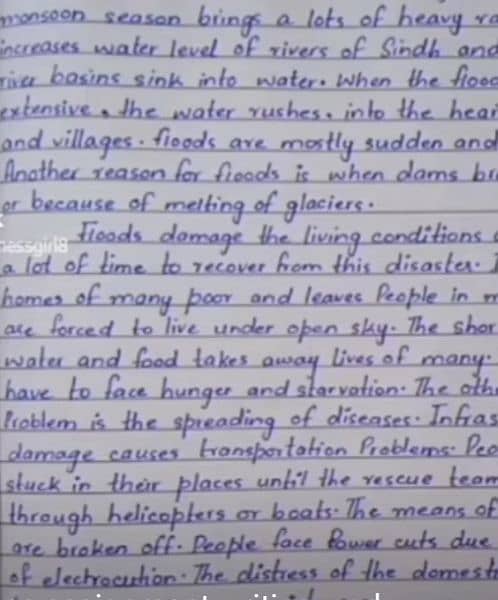 monsoon season brings a lots of heavy ra
increases water level of rivers of Sindh and
river basins sink into water. When the flood
extensive, the water rushes. into the hear
and villages. floods are mostly sudden and
Another reason for floods is when dams br
or because of melting of glaciers.
nessgirl8
Floods damage the living conditions
a lot of time to recover from this disaster.
homes of many poor and leaves People in m
are forced to live under open sky. The shor
water and food takes away lives of many.
have to face hunger and starvation. The oth
Problem is the spreading of diseases. Infras
damage causes transportation Problems. Peo
stuck in their places until the rescue team
through helicopters or boats. The means of
are broken off. People face Power cuts due
of electrocution. The distress of the domest